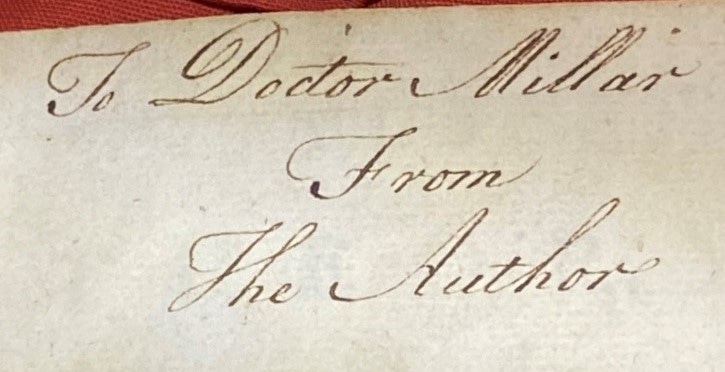 To Doctor Millar
From
The Author